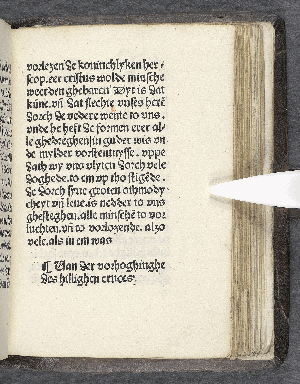 vorlezen de koninchlyken her-
scop. eer cristus wolde minsche
werden ghebaren Dyt is dat
kůne. vn̄ dat slechte vnses herē
dorch de vedere wente to vns.
vnde he heft de formen erer al-
le ghedreghen in guder wis vn
de mylder vorstentnysse. vppe
dath wy vns vlyten dorch vele
doghede. to em vp tho stigēde.
de dorch syne groten othmody-
cheyt vn̄ leue is nedder to vns
ghesteghen. alle minschē to vor
luchten. vn̄ to vorlozende. alzo
vele. als in em was
¶ Van der vorhoghinghe
des hillighen cruces.